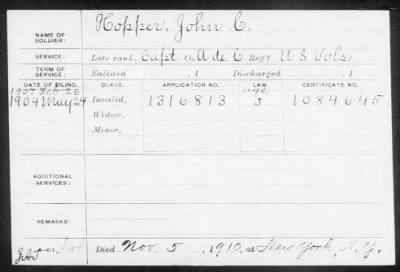 NAME OF SOLDIER: Hopper, John C.
SERVICE: Late rank, Capt Co. A de C Reg't U S Vols
TERM OF SERVICE: Enlisted , 1 Discharged , 1
DATE OF FILING. CLASS. APPLICATION NO. LAW. CERTIFICATE NO.
1907 Feb 26 age
1904 May 24 Invalid, 1316813 J 1084645
Widow,
Minor,
ADDITIONAL SERVICES:
REMARKS:
Died Nov. 5 , 1910, at New York, N.Y.